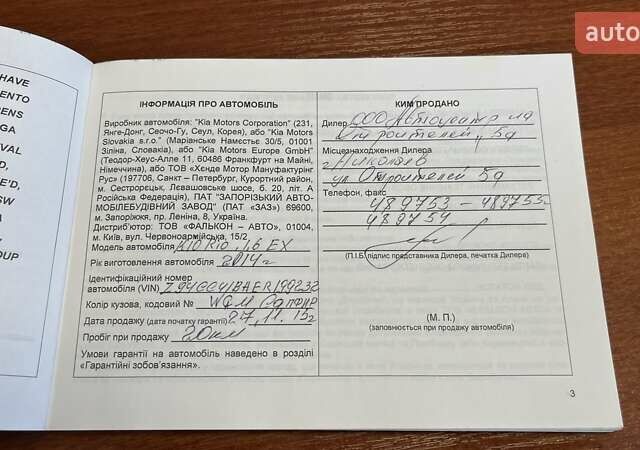 auto
HAVE
ENTO
ENS
GA
VAL
D,
'S,
E'D,
SW
OUP
ІНФОРМАЦІЯ ПРО АВТОМОБІЛЬ
Виробник автомобіля: "Kia Motors Corporation" (231,
Янге-Донг, Сеочо-Гу, Сеул, Корея), або "Kia Motors
Slovakia s.r.o." (Маріанське Намєстіє 30/5, 01001
Зіліна, Словакія), або "Kia Motors Europe GmbH"
(Теодор-Хеус-Алле 11, 60486 Франкфурт на Майні,
Німеччина), або ТОВ «Хєнде Мотор Мануфактурінг
Рус» (197706, Санкт – Петербург, Курортний район,
м. Сестрорєцьк, Лєвашовське шосе, б. 20, літ. А
Російська Федерація), ПАТ "ЗАПОРІЗЬКИЙ АВТО-
МОБІЛЕБУДІВНИЙ ЗАВОД" (ПАТ «ЗАЗ») 69600,
м. Запоріжжя, пр. Леніна, 8, Україна.
Дистриб'ютор: ТОВ «ФАЛЬКОН – АВТО», 01004,
м. Київ, вул. Червоноармійська, 15/2
Модель автомобіля KIO RIO, 1,6 EX
Рік виготовлення автомобіля 2014г
Ідентифікаційний номер
автомобіля (VIN)
Колір кузова, кодовий №
Дата продажу (дата початку гарантії) 27.11.15г
Пробіг при продажу 20км
Умови гарантії на автомобіль наведено в розділі
«Гарантійні зобов'язання».
КИМ ПРОДАНО
Дилер ООО Автоцентр на
Строителей, 5д
Місцезнаходження Дилера
г. Николаев
ул. Строителей 5д
Телефон, факс
489753 – 489755
489754
(П.І.Б. підпис представника Дилера, печатка Дилера)
(М. П.)
(заповнюється при продажу автомобіля)
3